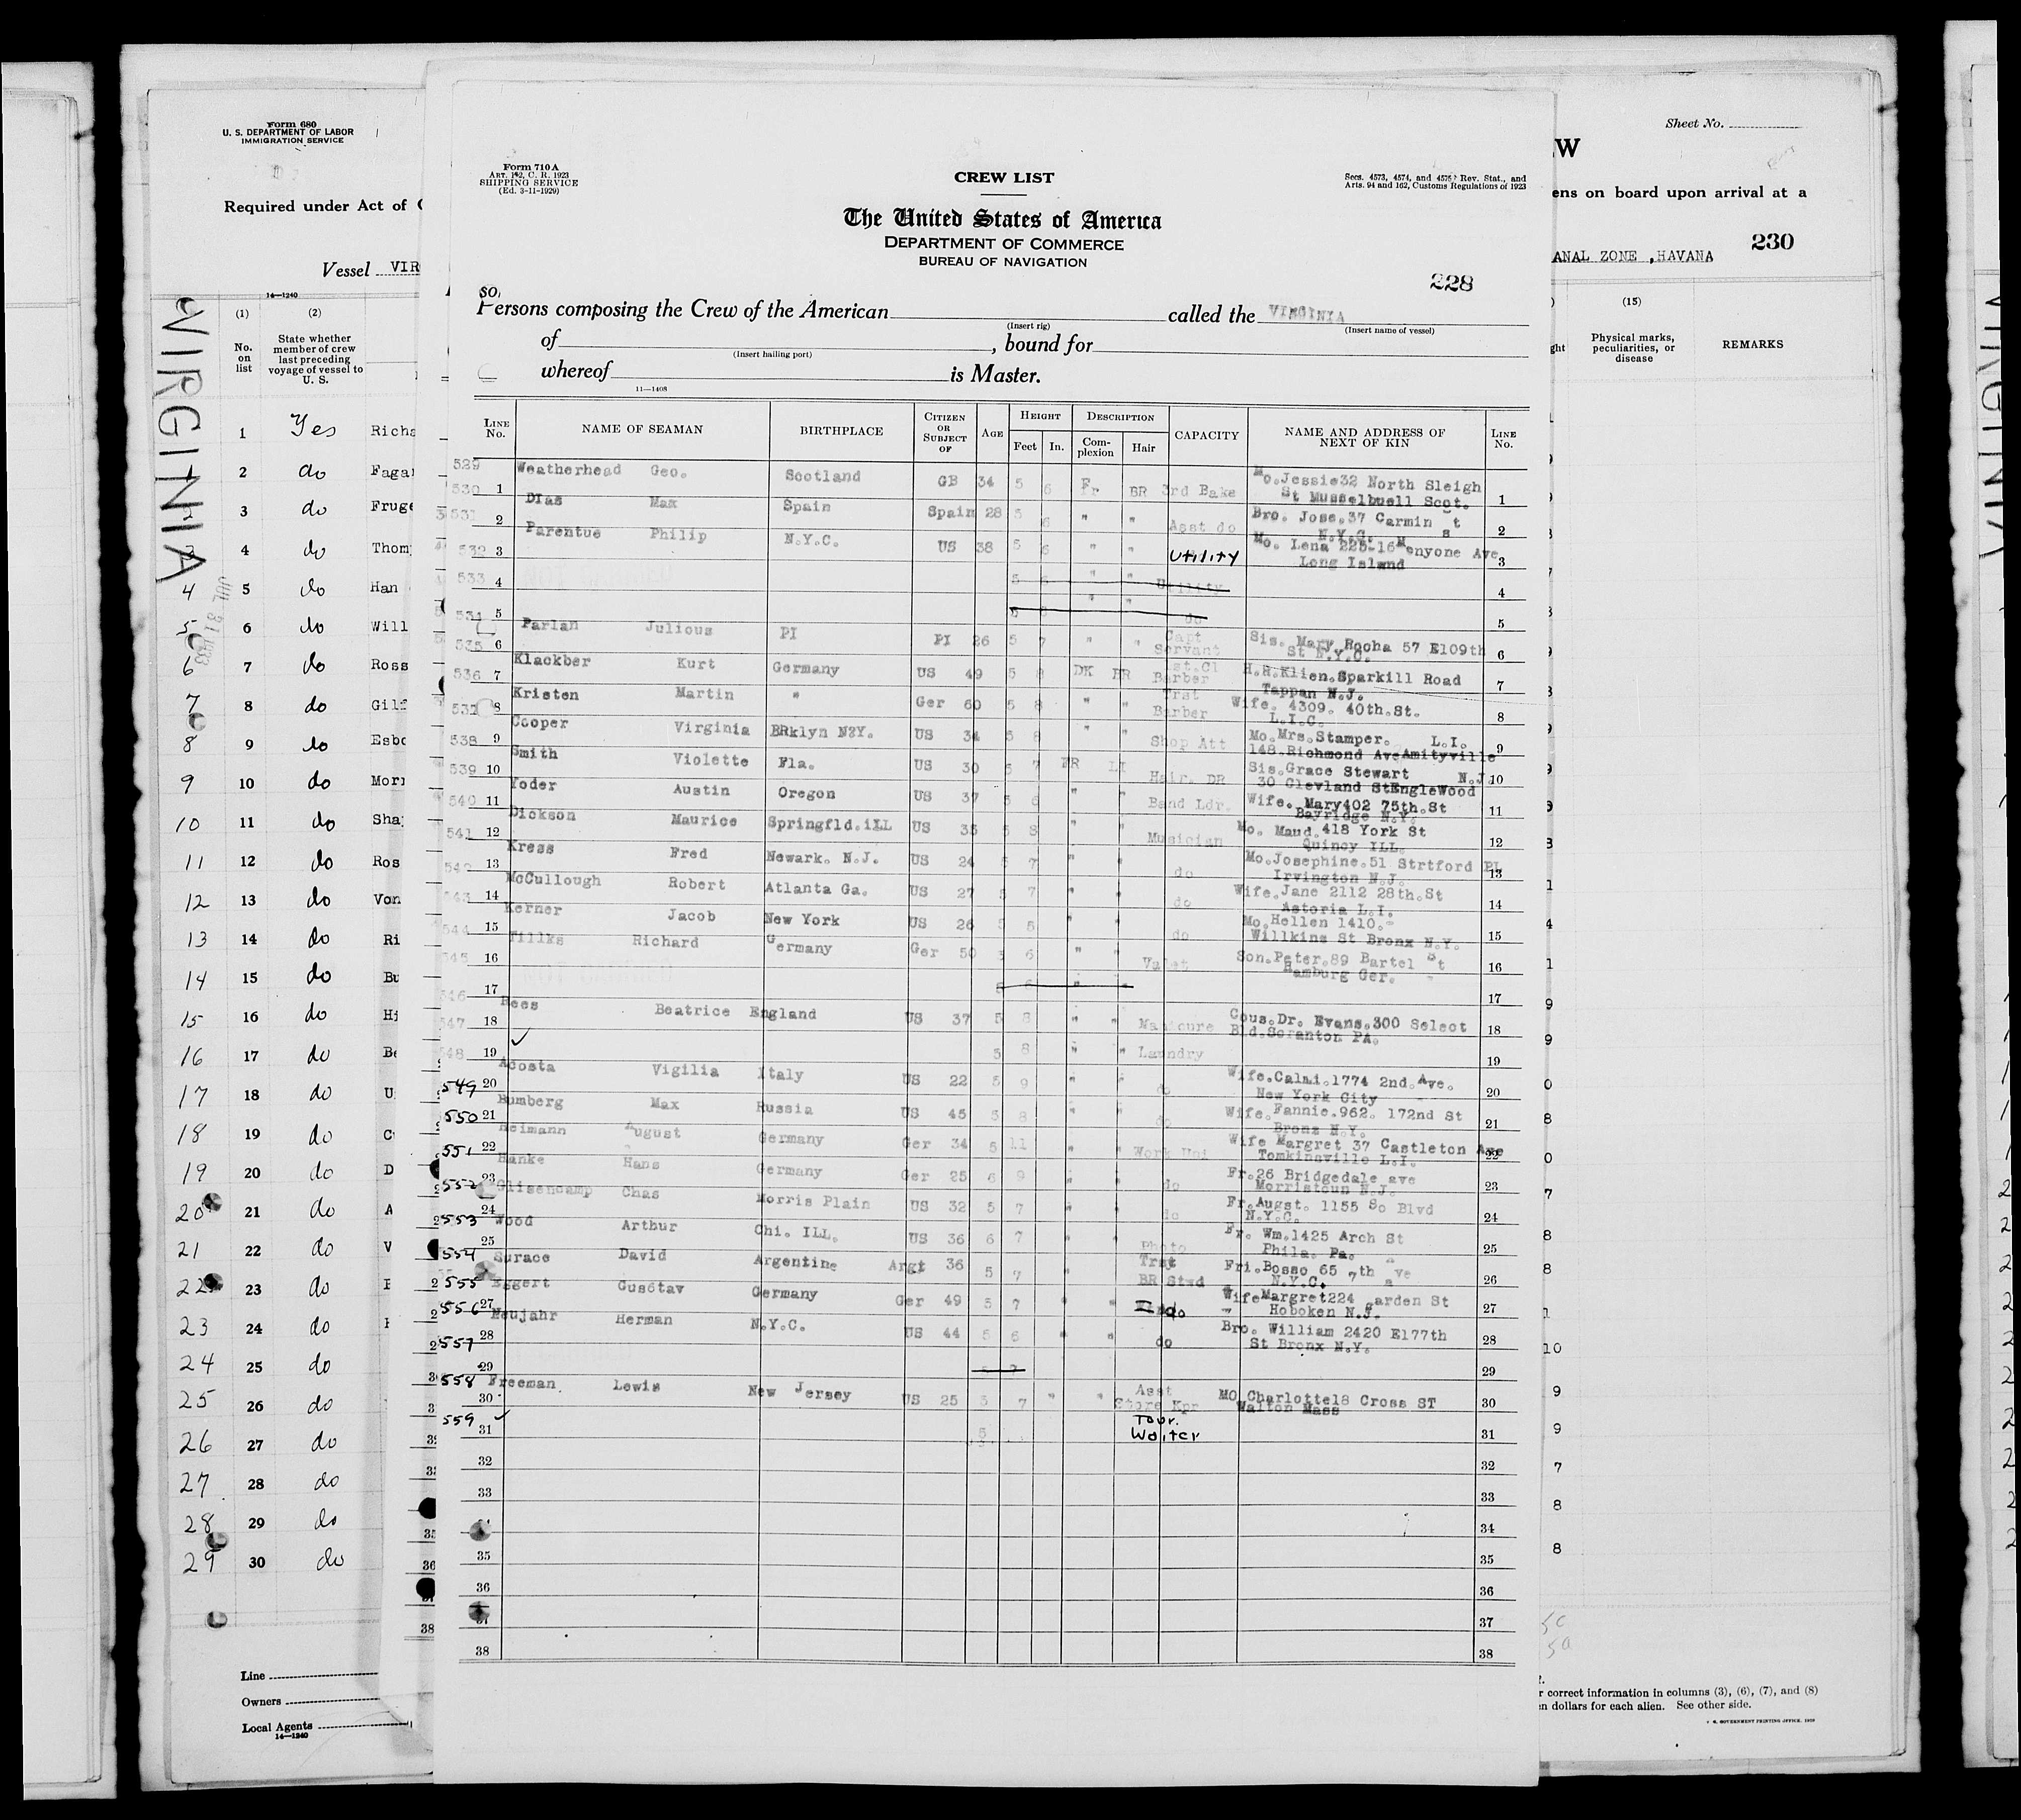 Form 680
U. S. DEPARTMENT OF LABOR
IMMIGRATION SERVICE
Required under Act of
Vessel VIR
14—1240
(1) (2)
No. on list
State whether member of crew last preceding voyage of vessel to U. S.
VIRGINIA
JUL 31 1933
1 Yes Richa
2 do Fagar
3 do Fruge
4 do Thom
4 5 do Han
5 6 do Will
6 7 do Ross
7 8 do Gilf
8 9 do Esbo
9 10 do Morr
10 11 do Sha
11 12 do Ros
12 13 do Von
13 14 do Ri
14 15 do Bu
15 16 do Hi
16 17 do Be
17 18 do U
18 19 do C
19 20 do D
20 21 do A
21 22 do V
22 23 do
23 24 do
24 25 do
25 26 do
26 27 do
27 28 do
28 29 do
29 30 do
Line
Owners
Local Agents
14—1240
Form 710 A
ART. 162, C. R. 1923
SHIPPING SERVICE
(Ed. 3-11-1929)
CREW LIST
Secs. 4573, 4574, and 4575 Rev. Stat., and
Arts. 94 and 162, Customs Regulations of 1923
The United States of America
DEPARTMENT OF COMMERCE
BUREAU OF NAVIGATION
228
so,
Persons composing the Crew of the American called the VIRGINIA
(Insert rig) (Insert name of vessel)
of , bound for
(Insert hailing port)
whereof is Master.
11—1408
LINE No. NAME OF SEAMAN BIRTHPLACE CITIZEN OR SUBJECT OF AGE HEIGHT DESCRIPTION CAPACITY NAME AND ADDRESS OF NEXT OF KIN LINE No.
Feet In. Complexion Hair
529 Weatherhead Geo. Scotland GB 34 5 6 Fr BR 3rd Bake Mo. Jessie32 North Sleigh
530 1 St Musselbuell Scot. 1
Dias Max Spain Spain 28 5 6 " " Asst do Bro. Jose.37 Carmin St
531 2 N.Y.C. 2
Parentue Philip N.Y.C. US 38 5 6 " " Utility Mo. Lena 225-16 Menyone Ave
532 3 Long Island 3
533 4 5 6 " " Utility 4
534 5 " " do 5
Parlan Julious PI PI 26 5 7 " " Capt Servant Sis. Mary Rocha 57 E109th
535 6 St N.Y.C. 6
Klackber Kurt Germany US 49 5 8 DK BR 1st.Cl Barber H.R.Klien.Sparkill Road
536 7 Tappan N.J. 7
Kristen Martin " Ger 60 5 8 " " Trst Barber Wife. 4309. 40th.St.
537 8 L.I.C. 8
Cooper Virginia BRklyn N8Y. US 34 5 8 " " Shop Att Mo.Mrs.Stamper. L.I.
538 9 148.Richmond AveAmityville 9
Smith Violette Fla. US 30 5 7 FR LI Hair. DR Sis.Grace Stewart N.J.
539 10 30 Clevland StEngleWood 10
Yoder Austin Oregon US 37 5 6 " " Band Ldr. Wife. Mary402 75th.St
540 11 Bayridge N.Y. 11
Dickson Maurice Springfld.iLL US 35 5 8 " " Musician Mo. Maud.418 York St
541 12 Quincy ILL. 12
Kress Fred Newark. N.J. US 24 5 7 " " do Mo.Josephine.51 Strtford PL
542 13 Irvington N.J. 13
McCullough Robert Atlanta Ga. US 27 5 7 " " do Wife.Jane 2112 28th.St
543 14 Astoria L.I. 14
Kerner Jacob New York US 26 5 8 " " do Mo.Hellen 1410.-
544 15 Willkins St Bronx N.Y. 15
Tillks Richard Germany Ger 50 5 6 " " Valet Son.Peter.89 Bartel St
545 16 Hamburg Ger. 16
546 17 5 6 " " 17
Rees Beatrice England US 37 5 8 " " Manicure Cous.Dr. Evans.300 Select
547 18 Bld.Scranton PA. 18
548 19 5 8 " " Laundry 19
Acosta Vigilia Italy US 22 5 9 " do Wife.Calmi.1774 2nd.Ave.
549 20 New York City 20
Bumberg Max Russia US 45 5 8 " " do Wife.Fannie.962. 172nd St
550 21 Bronx N.Y. 21
Heimann August Germany Ger 34 5 11 " " Work Uni Wife Margret 37 Castleton Ave
551 22 Tomkinsville L.I. 22
Hanke Hans Germany Ger 25 6 9 " " do Fr.26 Bridgedale ave
552 23 Morristoun N.J. 23
Olisencamp Chas Morris Plain US 32 5 7 " " do Fr.Augst. 1155 So Blvd
24 N.Y.C. 24
553 Wood Arthur Chi. ILL. US 36 6 7 " " Photo Fr. Wm.1425 Arch St
554 25 Phila. Pa. 25
Surace David Argentine Argt 36 5 7 " Trst BR Stwd Fri.Bosso 65 7th Ave
555 N.Y.C. 26
Eggert Gusótav Germany Ger 49 5 7 " " do WifeMargret224 Garden St
556 27 Hoboken N.J. 27
Neujahr Herman N.Y.C. US 44 5 6 " " do Bro. William 2420 E177th
557 28 St Bronx N.Y. 28
29 29
558 Freeman Lewis New Jersey US 25 5 7 " " Asst Store Kpr MO.Charlotte18 Cross ST
30 Walton Mass 30
559 31 5 Tour. Waiter 31
32 32
33 33
34
35 35
36 36
37
38 38
Sheet No.
W
ens on board upon arrival at a
230
ANAL ZONE ,HAVANA
(15)
ght
Physical marks, peculiarities, or disease
REMARKS
r correct information in columns (3), (6), (7), and (8)
n dollars for each alien. See other side.